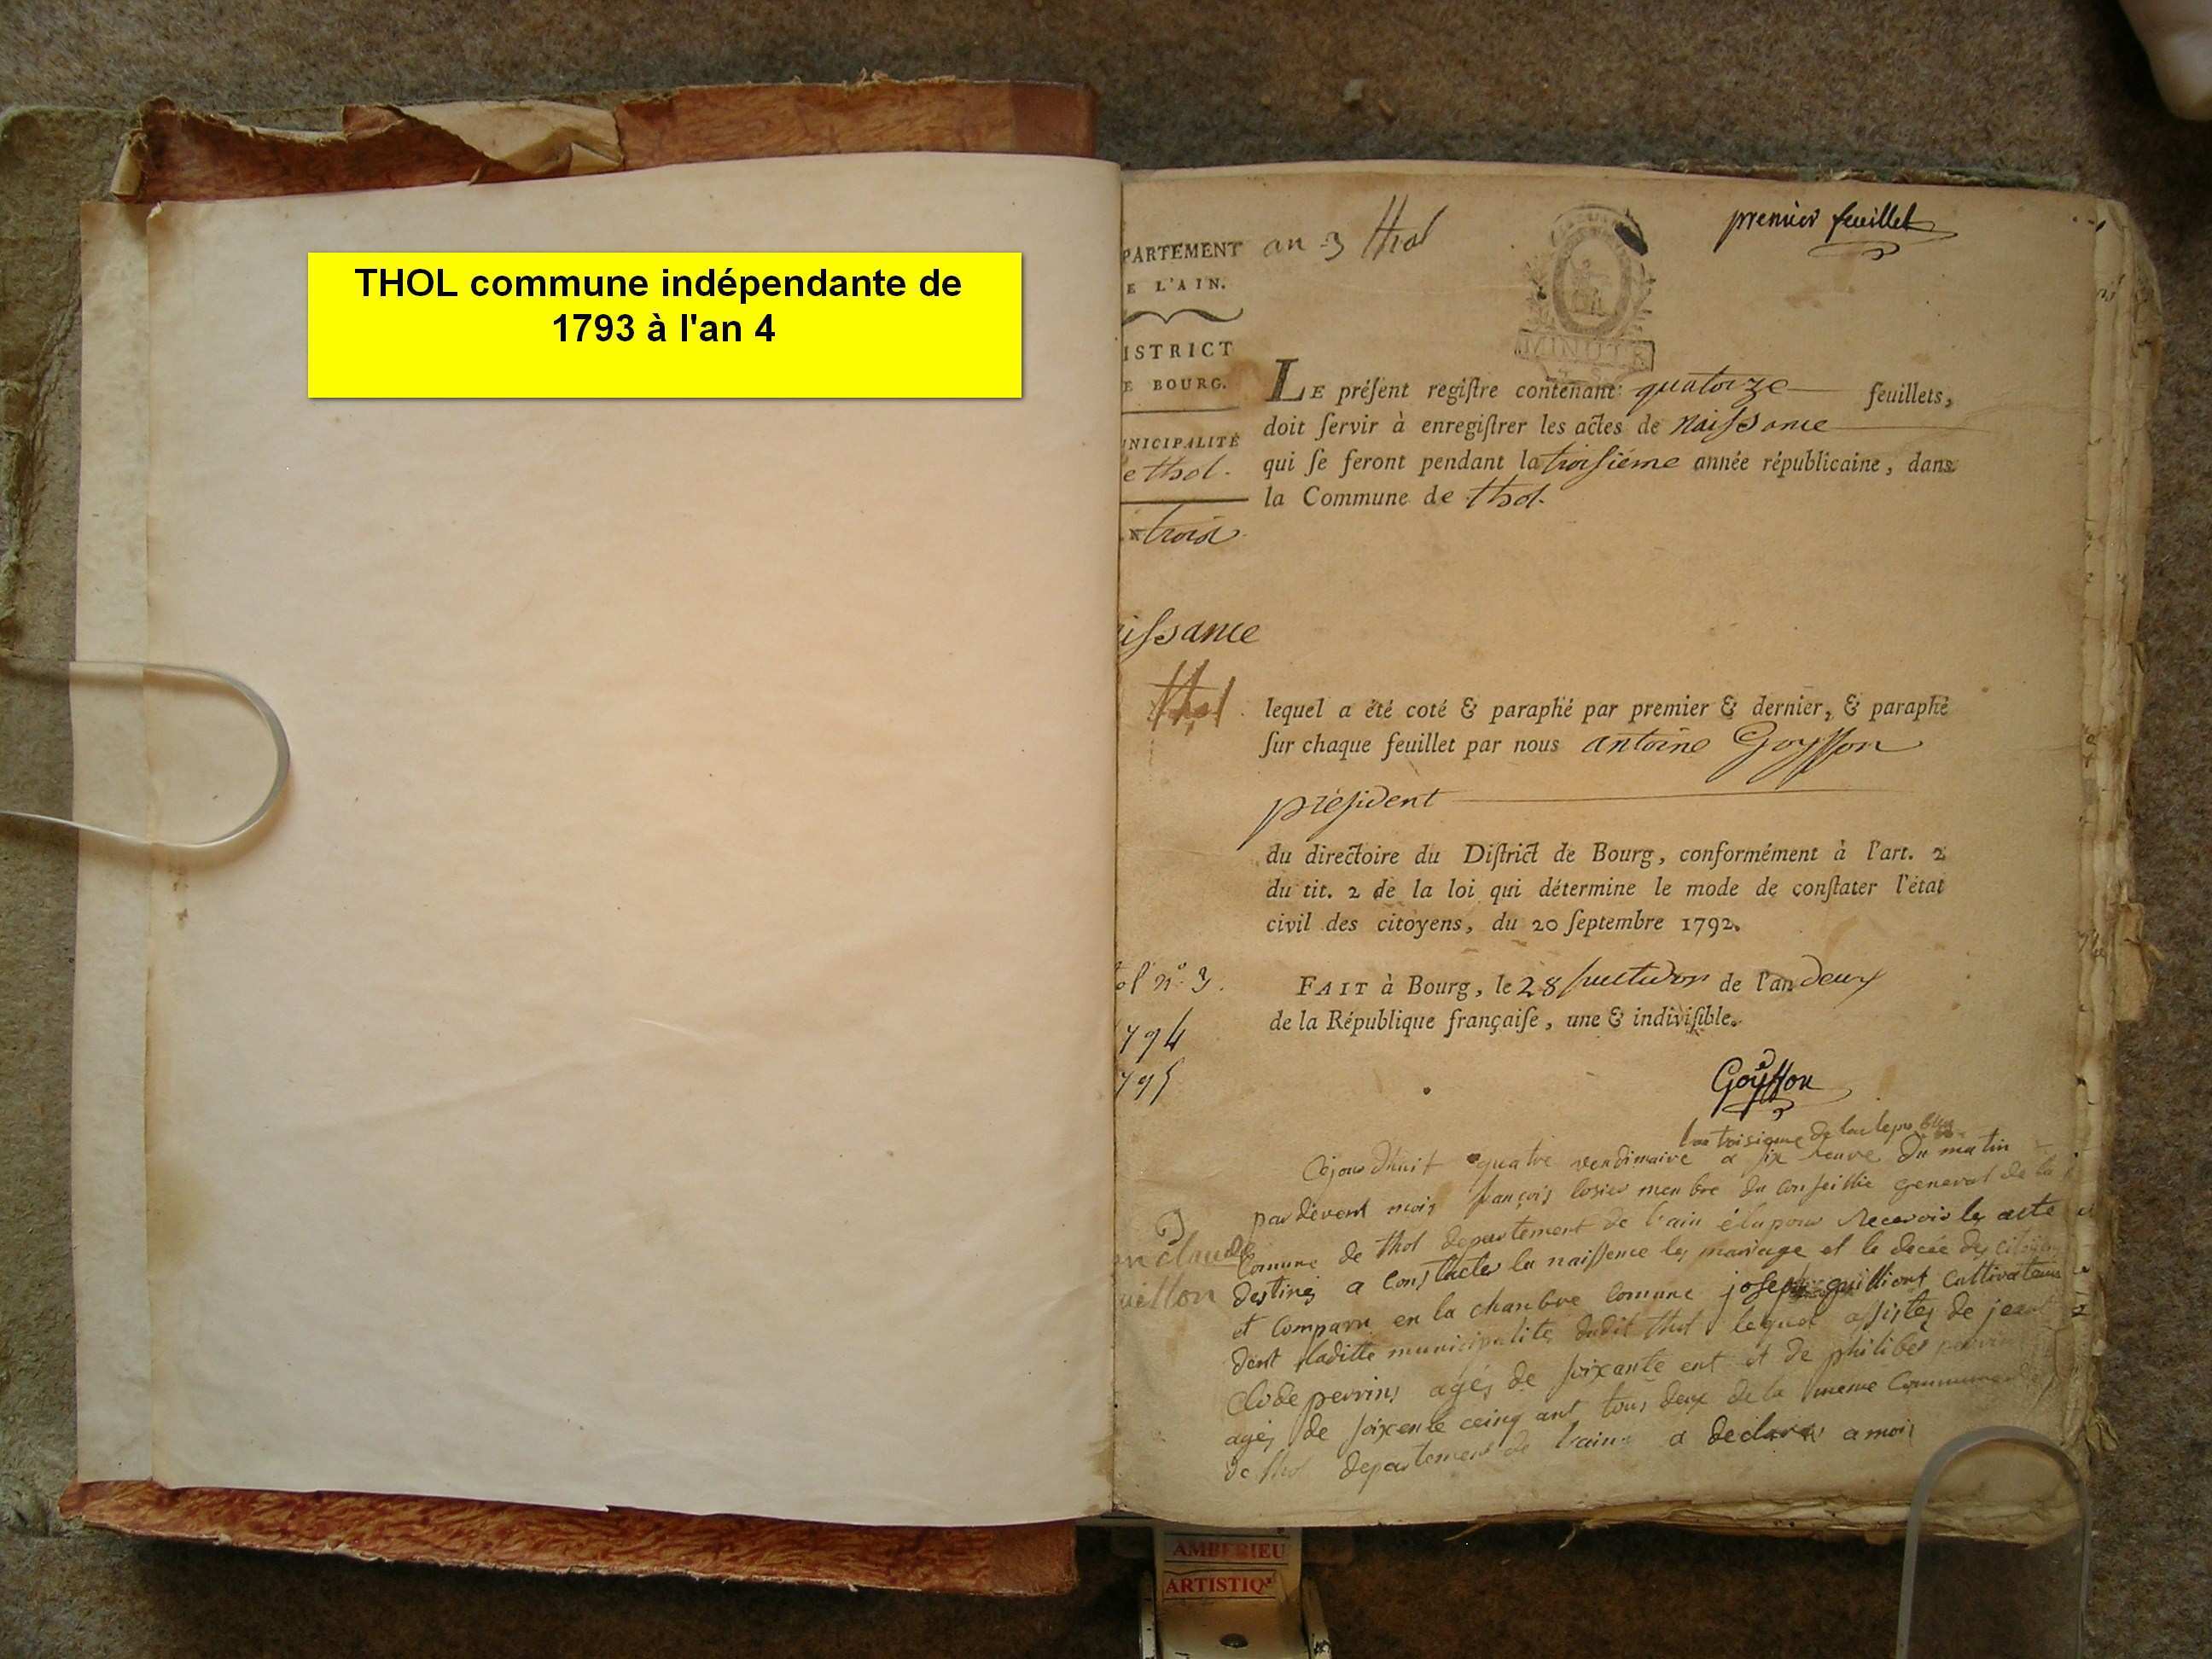 THOL commune indépendante de
1793 à l'an 4
premier feuillet
an 3 thol
PARTEMENT
E L'AIN.
ISTRICT
E BOURG.
NICIPALITÉ
e thol.
trois
MINUTE
LE préſent regiſtre contenant quatorze feuillets,
doit ſervir à enregiſtrer les actes de naissance
qui ſe feront pendant la troisième année républicaine, dans
la Commune de thol.
issance
thol
lequel a été coté & paraphé par premier & dernier, & paraphé
ſur chaque feuillet par nous antoine Goyffon
président
du directoire du Diſtrict de Bourg, conformément à l'art. 2
du tit. 2 de la loi qui détermine le mode de conſtater l'état
civil des citoyens, du 20 ſeptembre 1792.
ol n° 3.
794
795
FAIT à Bourg, le 28 fructidor de l'an deux
de la République françaiſe, une & indiviſible.
Goyffon
troisieme de la
Cejourdhuit quatre vendimaire a six heure du matin
par devent mois françois losier menbre du conseillie general de la
n claude
uillon
Comune de thol departement de l'ain élu pour recevoir les acte
destinés a constacter la naissence les mariage et le decée des
et comparu en la chanbre comune joseph guilliont cultivateur
dent laditte municipalites dudit thol lequel assistes de jean
Clode perrins agés de soixante ent et de philiber
agés de soixente ceinq ant tous deux de la meme Commune
de thol departement de l'ain a declares a mois
AMBERIEU
ARTISTIQ